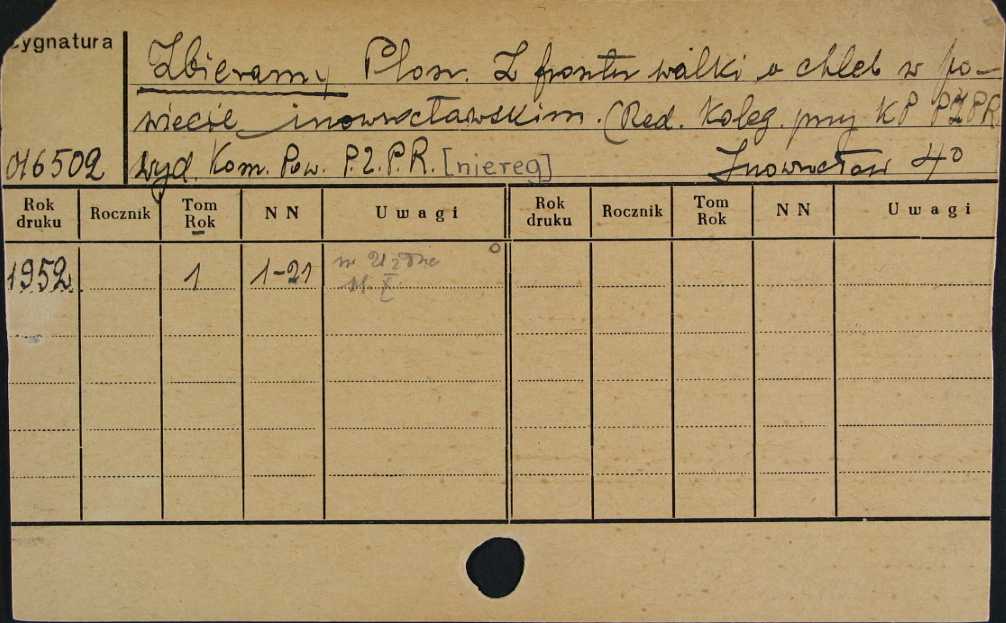 Sygnatura
Zbieramy Plon. Z frontu walki o chleb w po-
wiecie inowrocławskim. (Red. Koleg. przy KP PZPR
076502 Wyd. Kom. Pow. P.Z.P.R. [niereg] Inowrocław 4°
Rok druku Rocznik Tom Rok NN Uwagi Rok druku Rocznik Tom Rok NN Uwagi
1952. 1 1-21 nr 21 z dnia
11. X.